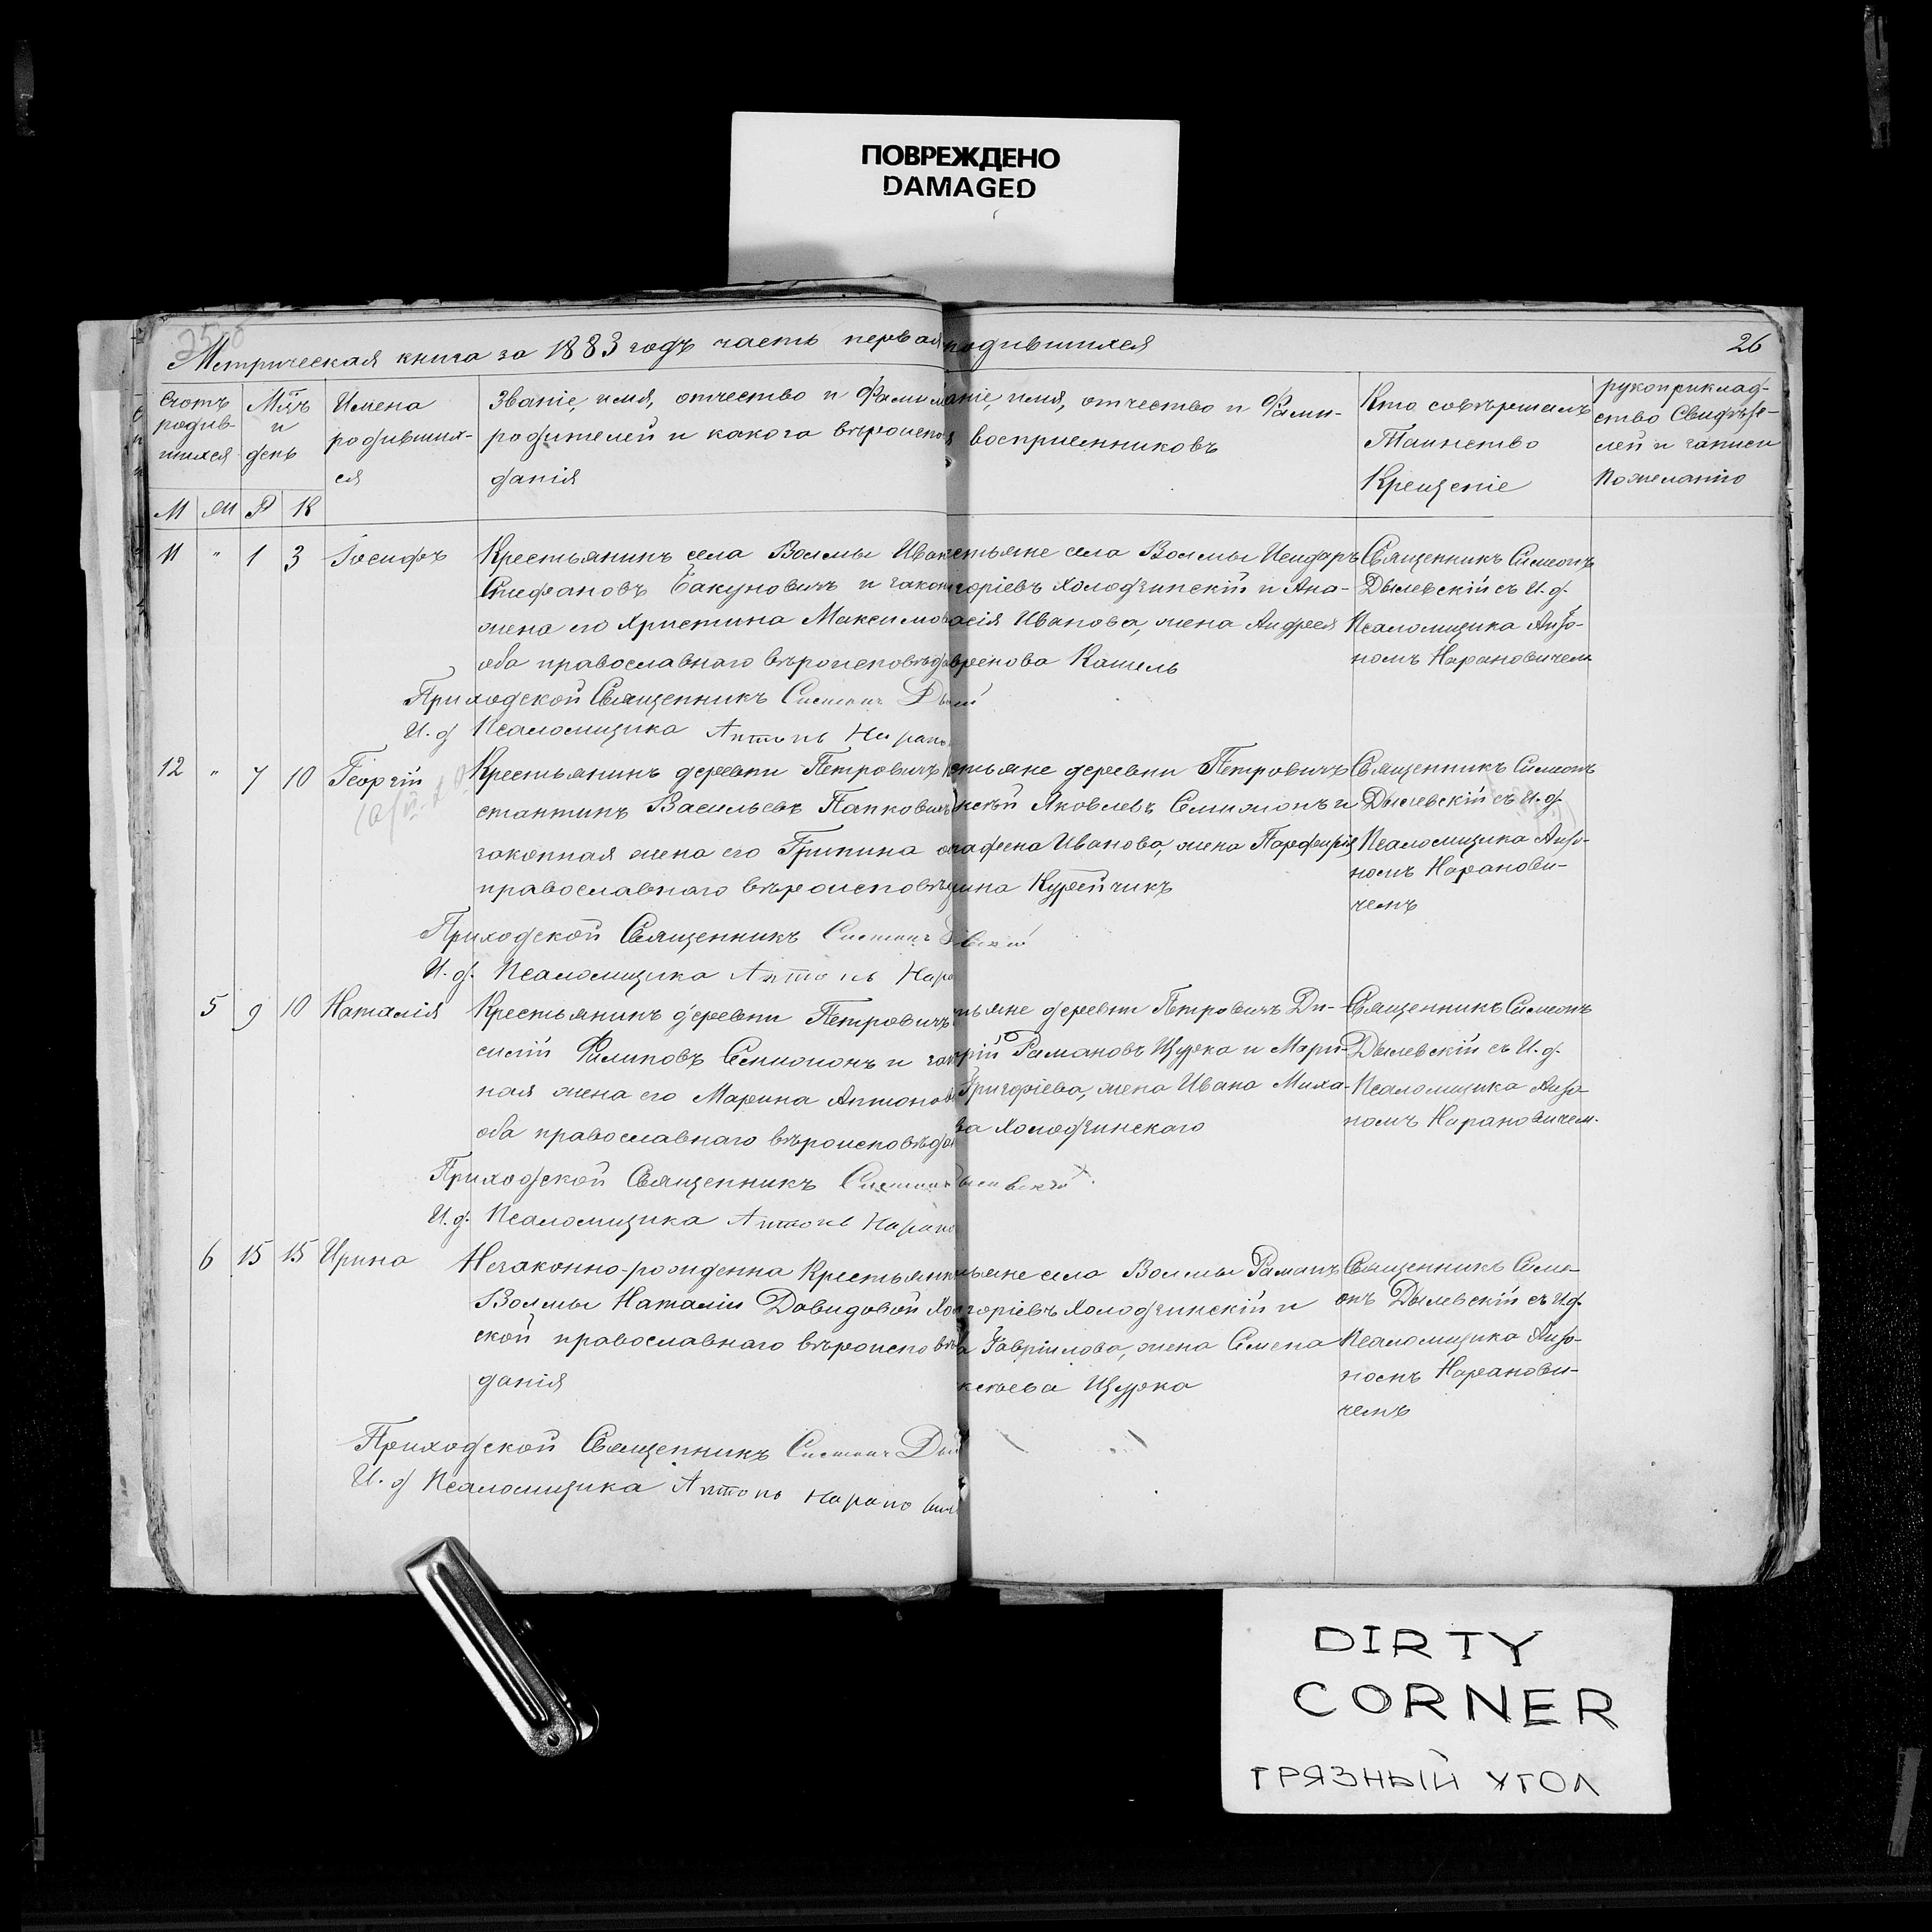 ПОВРЕЖДЕНО
DAMAGED
Метрическая книга за 1883 годъ часть первая родившихся
26
Счотъ
родив-
шихся
М Ж
Мѣцъ
и
день
Р К
Имена
родивших-
ся
Званіе, имя, отчество и Фамил
родителей и какога вѣроиспов
данія
аніе, имя, отчество и Фами-
восприемниковъ
Кто совѣршалъ
Таинство
Крещеніе
рукоприклад-
ство Свидѣте-
лей и записи
по желанію
11 " 1 3 Іосифъ
Крестьянинъ села Волмы Иван
Стефановъ Бакуновичъ и закон
жена его Христина Максимов
оба православнаго вѣроисповѣда
стьяне села Волмы Исидаръ
горіевъ Холодзинскій и Ана-
асія Иванова, жена Андрея
вренова Кашель
Священникъ Симеонъ
Дылевскій съ И. д.
Псаломщика Анто-
номъ Нарановичем
Приходской Священникъ Симеонъ Ды
И. д Псаломщика Антонъ Нарано
12 " 7 10 Георгій
Крестьянинъ деревни Петровичъ
стантинъ Васильевъ Папкович
законная жена его Грипина о
православнаго вѣроисповѣ
стьяне деревни Петровичъ
ксѣй Яковлевъ Семимонъ и
афена Иванова, жена Парфирія
Курейчикъ
Священникъ Симеонъ
Дылевскій съ И. д.
Псаломщика Анто-
номъ Наранови-
чемъ
Приходской Священникъ Симеонъ
И. д. Псаломщика Антонъ Нара
5 9 10 Наталія
Крестьянинъ деревни Петровичъ
силій Филиповъ Семионон и зак
ная жена его Марина Антонов
оба православнаго вѣроисповѣда
тьяне деревни Петровичъ Ди-
трій Рамановъ Щурка и Мари-
Григоріева, жена Ивана Миха-
ва Холодзинскаго
Священникъ Симеонъ
Дылевскій съ И. д.
Псаломщика Анто-
номъ Нарановичем.
Приходской Священникъ Симеонъ Дылевскій
И. д. Псаломщика Антонъ Наран
6 15 15 Ирина
Незаконно-рожденна Крестьянк
Волмы Наталіи Давидовой Хол
ской православнаго вѣроисповѣ
данія
ьяне села Волмы Раманъ
горіевъ Холодзинскій и
а Гавріилова, жена Семена
ксѣева Щурка
Священникъ Симе-
онъ Дылевскій съ И.д.
Псаломщика Анто-
номъ Наранови-
чемъ
Приходской Священникъ Симеонъ Ды
И. д Псаломщика Антонъ Нарано вич
DIRTY
CORNER
ГРЯЗНЫЙ УГОЛ